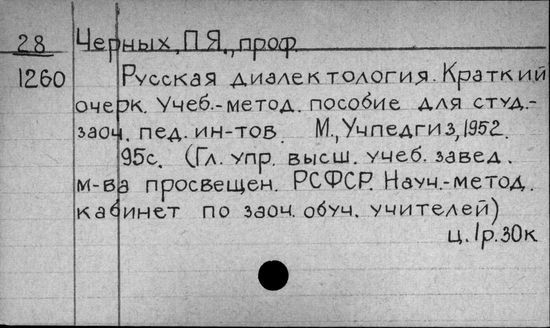 28 Черных, П.Я., проф.
1260 Русская диалектология. Краткий
очерк. Учеб.-метод. пособие для студ.-
заоч. пед. ин-тов. М., Учпедгиз, 1952.
95с. (Гл. упр. высш. учеб. завед.
м-ва просвещен. РСФСР. Науч.-метод.
кабинет по заоч. обуч. учителей)
ц. 1р. 30к